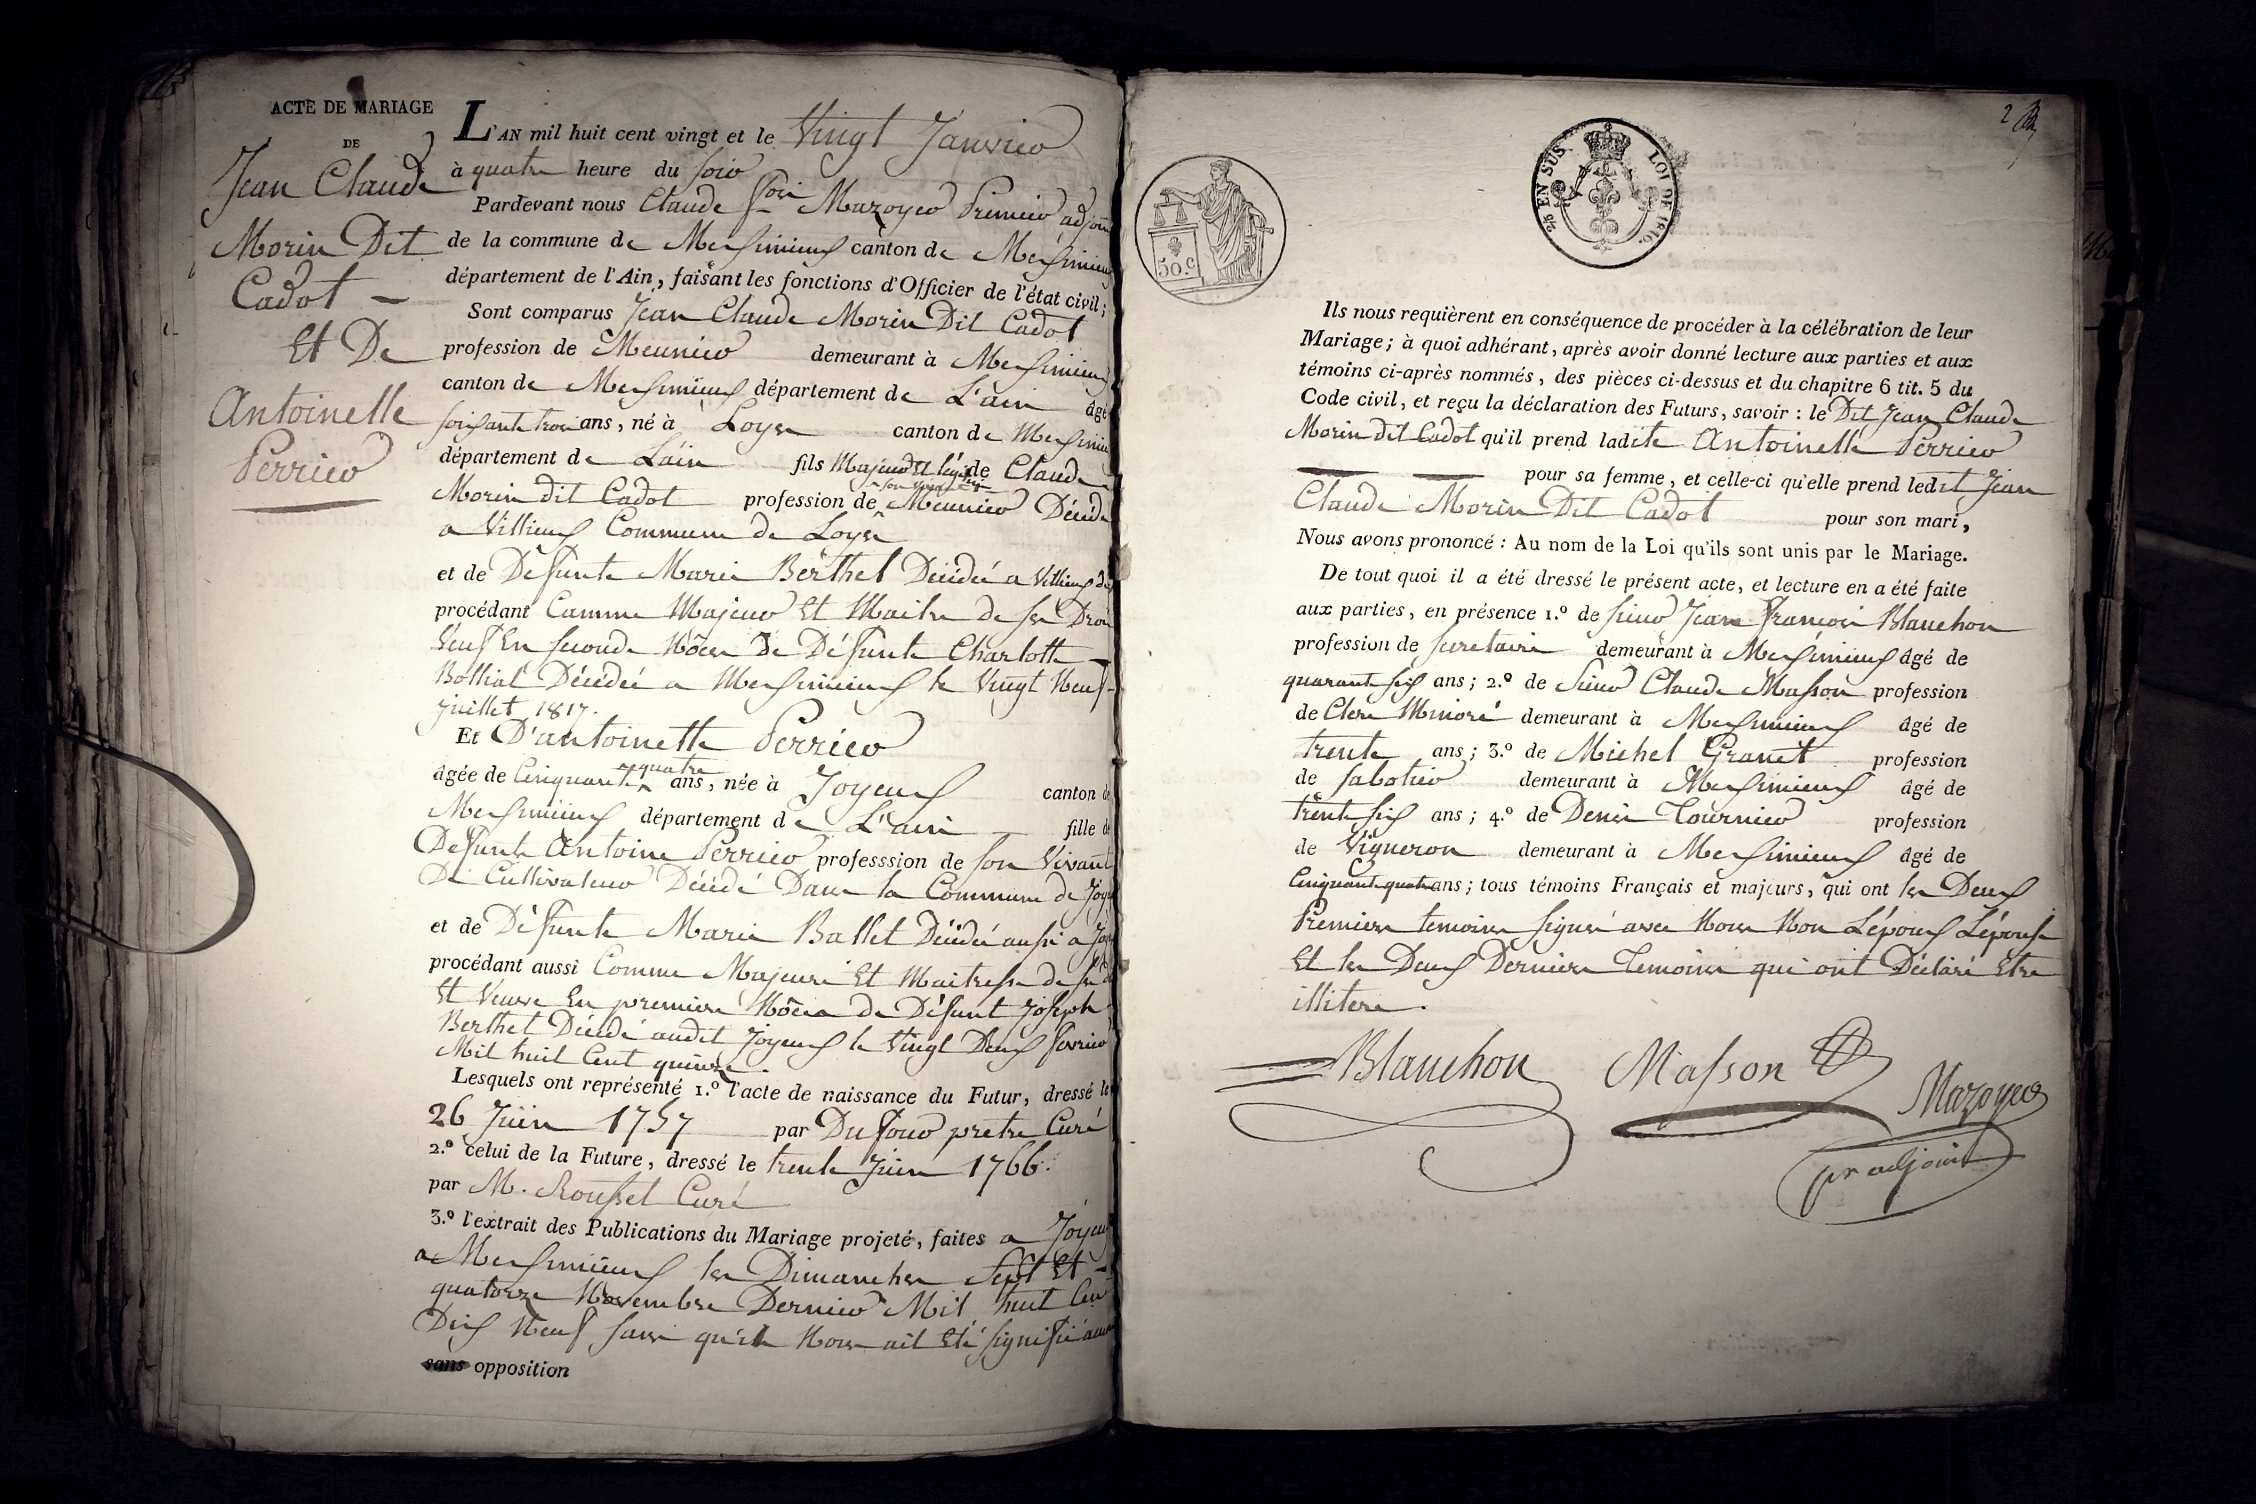 ACTE DE MARIAGE
DE
Jean Claude
Morin Dit
Cadot
Et De
Antoinette
Perrier
L'AN mil huit cent vingt et le Vingt Janvier
à quatre heure du soir
Pardevant nous Claude fçois Mazoyer Premier adjoin
de la commune de Meximieux canton de Meximieux
département de l'Ain, faisant les fonctions d'Officier de l'état civil;
Sont comparus Jean Claude Morin Dit Cadot
profession de Meunier demeurant à Meximieux
canton de Meximieux département de L'ain âgé
soixante trois ans, né à Loyes canton de Meximieux
département de Lain fils Majeur Et légi de Claude
Morin dit Cadot profession de Meunier Décédé
a Villieux Commune de Loyes
et de Défunte Marie Berthet Décédée a Villieux
procédant Comme Majeur Et Maitre de ses Droi
Veuf En seconde Nôces De Défunte Charlotte
Bolliat Décédée a Meximieux le Vingt Neuf
juillet 1817.
Et D'antoinette Perrier
âgée de Cinquante quatre ans, née à Joyeux canton de
Meximieux département de L'ain fille de
Défunt Antoine Perrier professsion de son Vivant
De Cultivateur Décédé Dans la Commune de Joye
et de Défunte Marie Ballet Décédée aussi a Joy
procédant aussi Comme Majeure Et Maitresse de ses
Et Veuve En premiere Nôces de Défunt Joseph
Berthet Décédé audit Joyeux le Vingt Deux fevrier
Mil huit Cent quinze.
Lesquels ont représenté 1.º l'acte de naissance du Futur, dressé le
26 Juin 1757 par Dufour pretre Curé
2.º celui de la Future, dressé le trente Juin 1766.
par M. Rousset Curé
3.º l'extrait des Publications du Mariage projeté, faites a Joyeux
a Meximieux les Dimanches Sept Et
quatorze Novembre Dernier Mil huit Cent
Dix Neuf sans qu'il Nous ait Eté signifié
sans opposition
2
2/10 EN SUS. LOI DE 1816.
50.C
Ils nous requièrent en conséquence de procéder à la célébration de leur
Mariage; à quoi adhérant, après avoir donné lecture aux parties et aux
témoins ci-après nommés, des pièces ci-dessus et du chapitre 6 tit. 5 du
Code civil, et reçu la déclaration des Futurs, savoir : le Dit Jean Claude
Morin dit Cadot qu'il prend ladite Antoinette Perrier
pour sa femme, et celle-ci qu'elle prend ledit Jean
Claude Morin Dit Cadot pour son mari,
Nous avons prononcé : Au nom de la Loi qu'ils sont unis par le Mariage.
De tout quoi il a été dressé le présent acte, et lecture en a été faite
aux parties, en présence 1.º de sieur Jean francois Blanchon
profession de secretaire demeurant à Meximieux âgé de
quarante six ans; 2.º de Sieur Claude Masson profession
de Clerc Minoré demeurant à Meximieux âgé de
trente ans; 3.º de Michel Granet profession
de sabotier demeurant à Meximieux âgé de
trente six ans; 4.º de Denis Tournier profession
de Vigneron demeurant à Meximieux âgé de
Cinquante quatre ans; tous témoins Français et majeurs, qui ont les Deux
Premiers temoins signés avec Nous Non L'époux L'épouse
Et les Deux Derniers Temoins qui ont Déclaré Etre
illiteres.
Blanchon Masson Mazoyer
pr adjoint